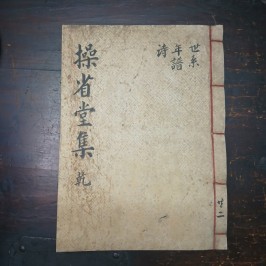 世系
年譜
詩
操省堂集 乾
共二